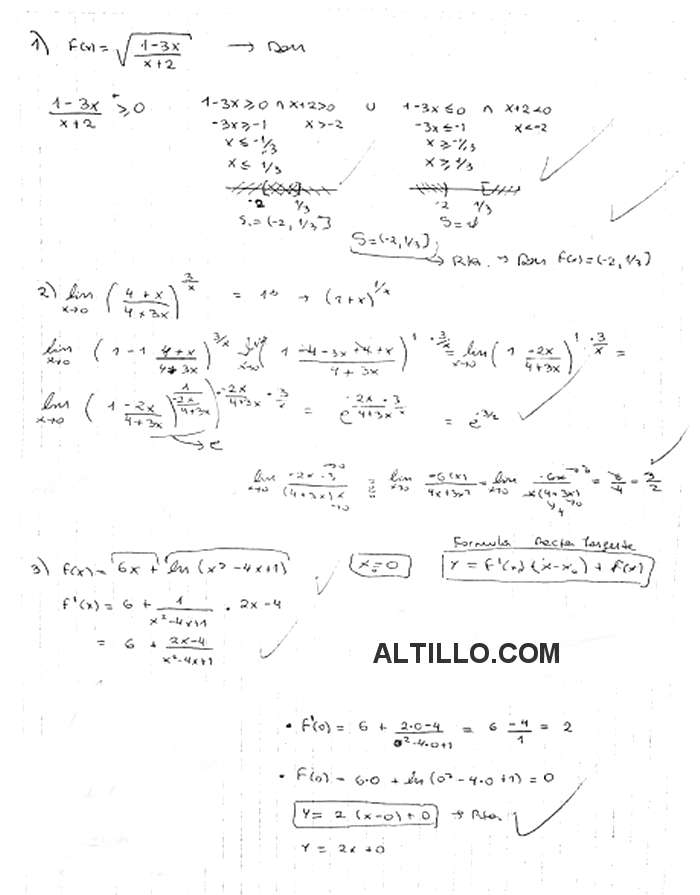 1) F(x) = √((1-3x)/(x+2)) → Dom
(1-3x)/(x+2) ≥ 0
1-3x ≥ 0 ∩ x+2 > 0 ∪ 1-3x ≤ 0 ∩ x+2 < 0
-3x ≥ -1 x > -2 -3x ≤ -1 x < -2
x ≤ -1/-3 x ≥ -1/-3
x ≤ 1/3 x ≥ 1/3
-2 1/3 -2 1/3
S = (-2, 1/3]
S = (-2, 1/3]
→ Rta. → Dom f(x) = (-2, 1/3]
2) lim x→0 ((4+x)/(4+3x))^(3/x) = 1^∞ → (1+x)^(1/x)
lim x→0 (1-1 (4+x)/(4+3x))^(3/x) lim x→0 (1 (-4-3x+4+x)/(4+3x))^(1 · 3/x) = lim x→0 (1 (-2x)/(4+3x))^(1 · 3/x) =
lim x→0 (1 (-2x)/(4+3x))^(1/((-2x)/(4+3x)) · (-2x)/(4+3x) · 3/x) = e^((-2x)/(4+3x) · 3/x) = e^(-3/2)
→ e
lim x→0 (-2x·3)/((4+3x)x) = lim x→0 (-6(x))/(4x+3x²) = lim x→0 (-6x)/(x(4+3x)) = -6/4 = -3/2
3) f(x) = 6x + ln(x²-4x+1) x₀=0
Formula Recta Tangente
Y = F'(x₀)(x-x₀) + f(x)
f'(x) = 6 + 1/(x²-4x+1) · 2x-4
= 6 + (2x-4)/(x²-4x+1)
ALTILLO.COM
• F'(0) = 6 + (2·0-4)/(0²-4·0+1) = 6 -4/1 = 2
• F(0) = 6·0 + ln(0²-4·0+1) = 0
Y = 2(x-0)+0 → Rta.
Y = 2x+0